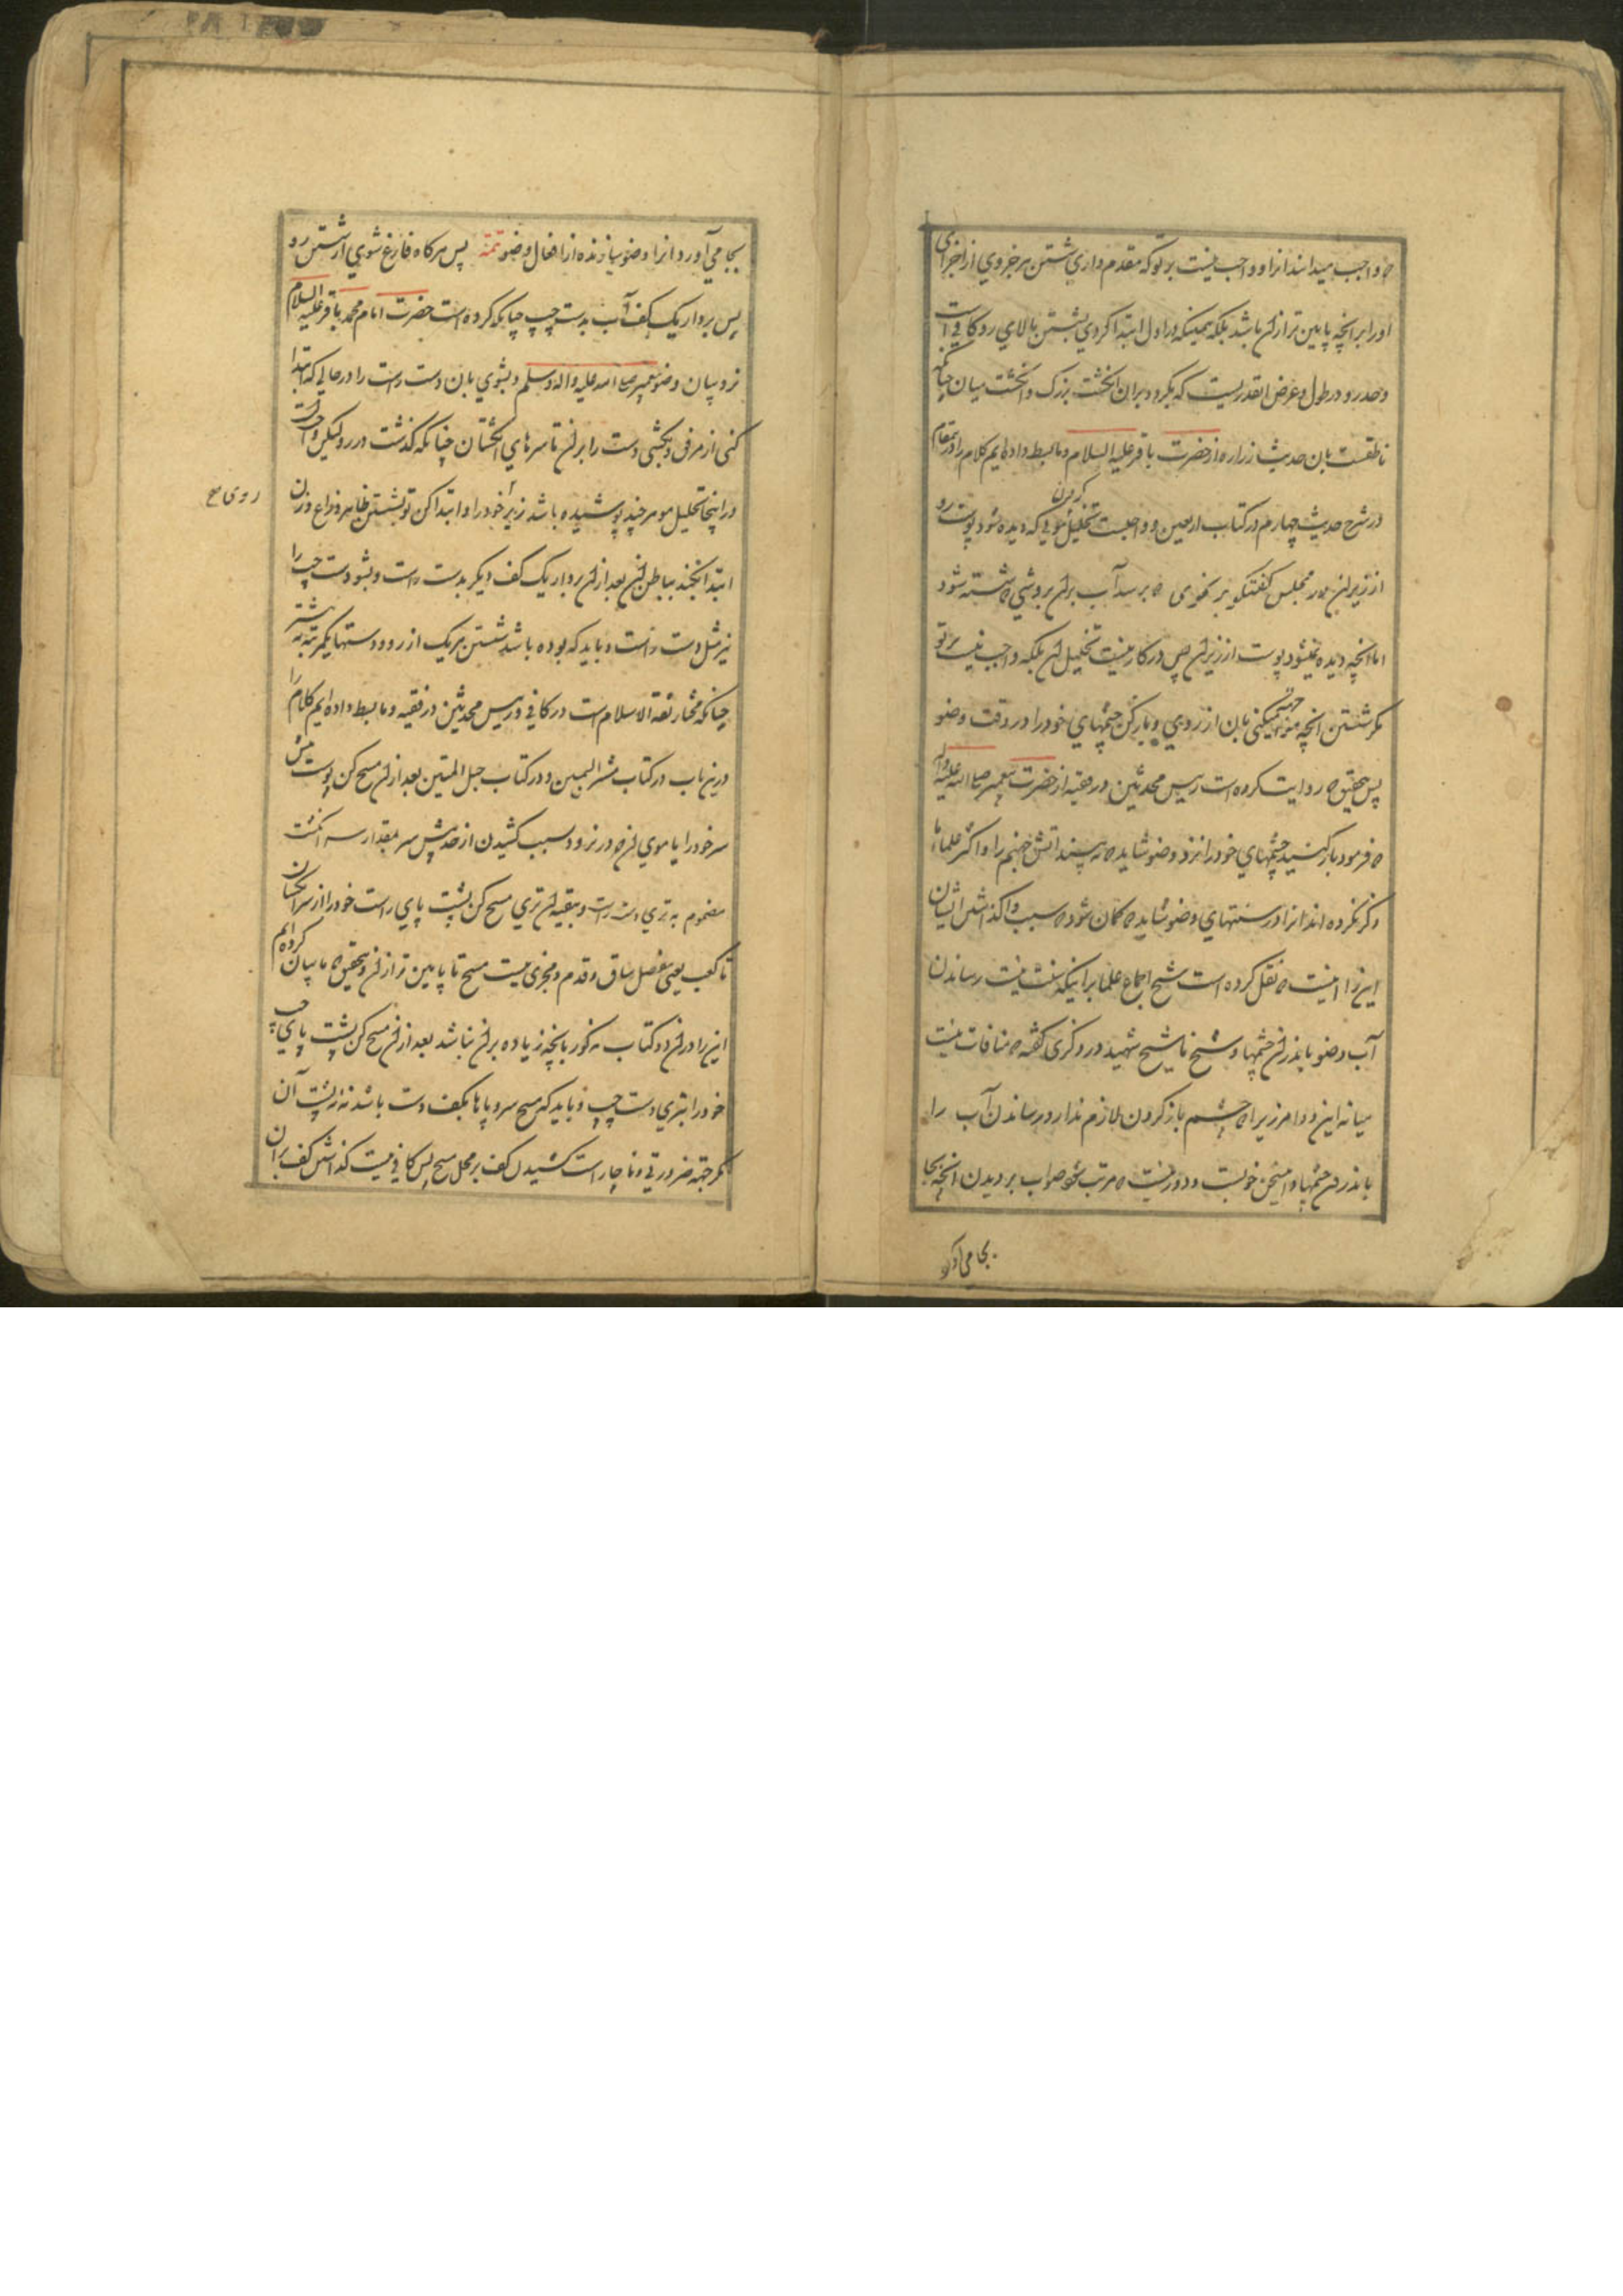 که واجب میدانند انرا و واجب نیست بر تو که مقدم داری شستن هر جزوی از اجزای
او را بر انچه پایین تر ازان باشد بلکه همینکه در اول ابتدا کردی بشستن بالای رو کافی است
و حد رو در طول و عرض انقدریست که بگردد بران انگشت بزرک و انگشت میان چنانکه
ناطقست بان حدیث زراره از حضرت باقر علیه السلام و ما بسط داده ایم کلام را در مقام
در شرح حدیث چهارم در کتاب اربعین و واجبست تخلیل کردن موئی که دیده شود پوست رو
از زیر ان در مجلس گفتگو بر نحوی که برسد آب بران بروشی که شسته شود
اما انچه دیده نمیشود پوست از زیر ان پس در کار نیست تخلیل ان بلکه واجب نیست بر تو
مگر شستن انچه مواجهه میکنی بان از روی و باز کن چشمهای خود را در وقت وضو
پس بتحقیق که روایت کرده است رییس محدثین در فقیه از حضرت پیغمبر صلی الله علیه و آله
که فرمود باز کنید چشمهای خود را نزد وضو شاید که نه بینند اتش جهنم را و اکثر علما ما
ذکر نکرده اند انرا در سنتهای وضو شاید که گمان شود که سبب وا گذاشتن ایشان
این را انیست که نقل کرده است شیخ اجماع علما بر اینکه سنت نیست رساندن
آب وضو باندرون چشمها و شیخ ما شیخ شهید در ذکری گفته که منافات نیست
میانه این دو امر زیرا که چشم باز کردن لازم ندارد رساندن آب را
باندرون چشمها و این سخن خوبست و دور نیست که مرتب شود صواب بر دیدن انچه بجا
بجا می آورد
بجا می آورد انرا وضو سازنده از افعال وضو تتمه پس هرگاه فارغ شوی از شستن رو
پس بردار یک کف آب بدست چپ چنانکه کرده است حضرت امام محمد باقر علیه السلام
نزد بیان وضو پیغمبر صلی الله علیه واله وسلم و بشوی بان دست راست را در حالی که ابتدا
کنی از مرفق و بکشی دست را بران تا سرهای انگشتان چنانکه گذشت در رو لیکن واجبست
در اینجا تخلیل مو هر چند پوشیده باشد زیر خود را و ابتدا کن تو بشستن ظاهر ذراع و زن
روی
ابتدا کند بباطن ان بعد ازان بردار یک کف دیگر بدست راست و بشو دست چپ را
نیز مثل دست راست و باید که بوده باشد شستن هر یک از رو و دستها یکمرتبه نه بیشتر
چنانکه مختار ثقة الاسلام است در کافی و رییس محدثین در فقیه و ما بسط داده ایم کلام را
درین باب در کتاب مشرق الشمسین و در کتاب حبل المتین بعد ازان مسح کن پوست پیش
سر خود را یا موی ان که در نرود بسبب کشیدن از حد پیش سر بمقدار سه انگشت
مضموم به تری دست راست و ببقیه ان تری مسح کن پشت پای راست خود را از سر انگشتان
تا کعب یعنی مفصل ساق و قدم و مجزی نیست مسح تا پایین تر ازان و بتحقیق که ما بیان کرده ایم
این را در ان دو کتاب مذکور بانچه زیاده بران نباشد بعد ازان مسح کن پشت پای چپ
خود را بتری دست چپ و باید که مسح سر و پاها بکف دست باشد نه از پشت آن
مگر جهته ضرورتی و ناچار است کشیدن کف بر محل مسح پس کافی نیست گذاشتن کف بران